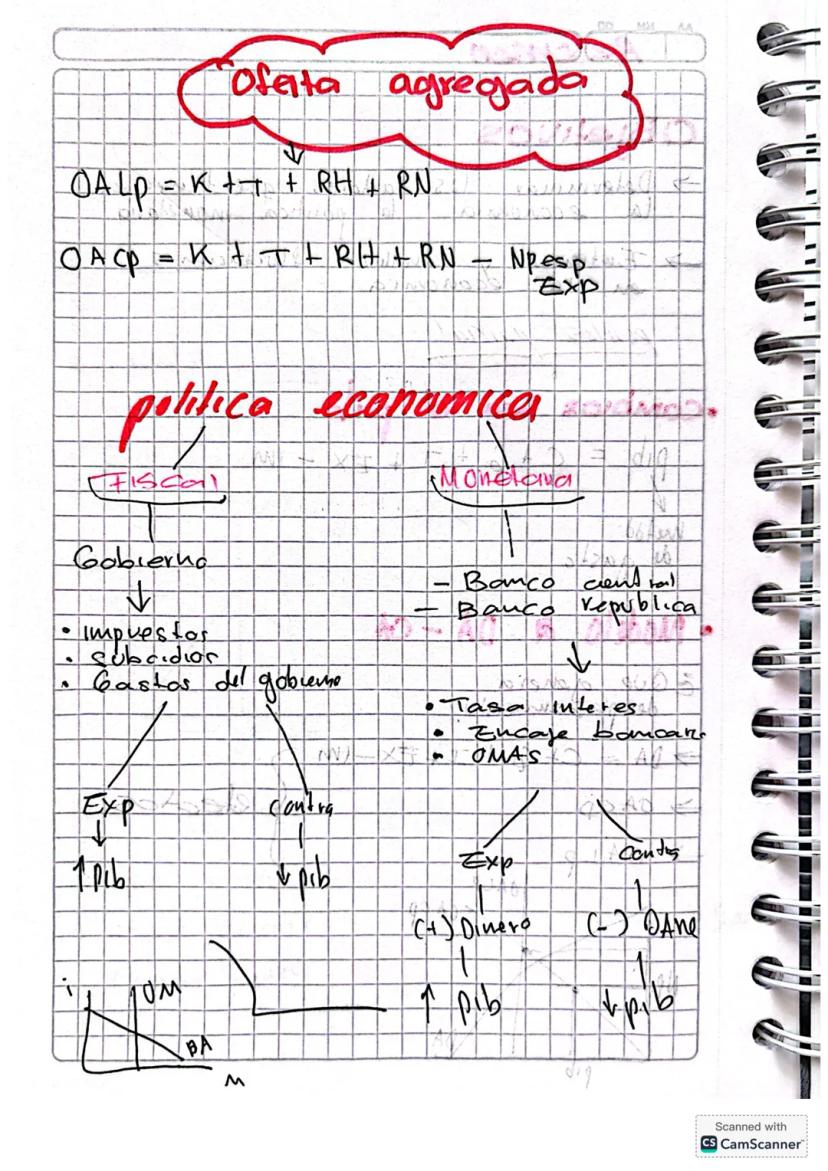 Oferta agregada
OALp = K + T + RH + RN
OACp = K + T + RH + RN - Npesp
Exp
politica economica
Fiscal
Monetaria
Gobierno
- Banco central
- Banco republica
• impuestos
• subsidios
• Gastos del gobierno
• Tasa interes
• Encaje bancario
• OMAS
Exp
contra
↑ pib
↓ pib
Exp
Contra
(+) Dinero
(-)
↑ pib
↓ pib
i
OM
M
Scanned with
CS CamScanner